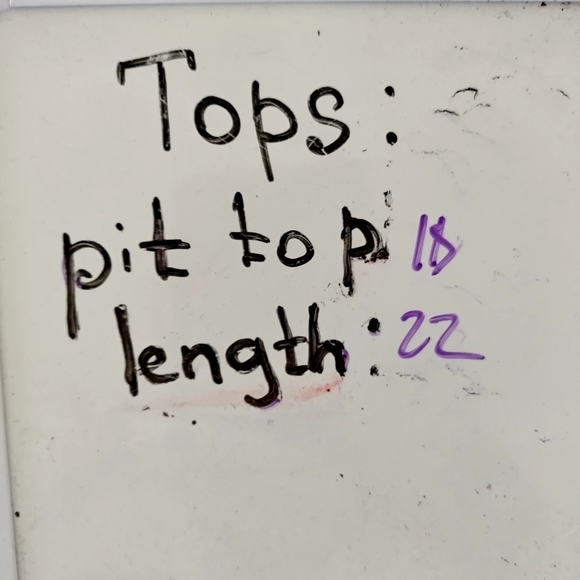 Tops:
pit to p 18
length: 22